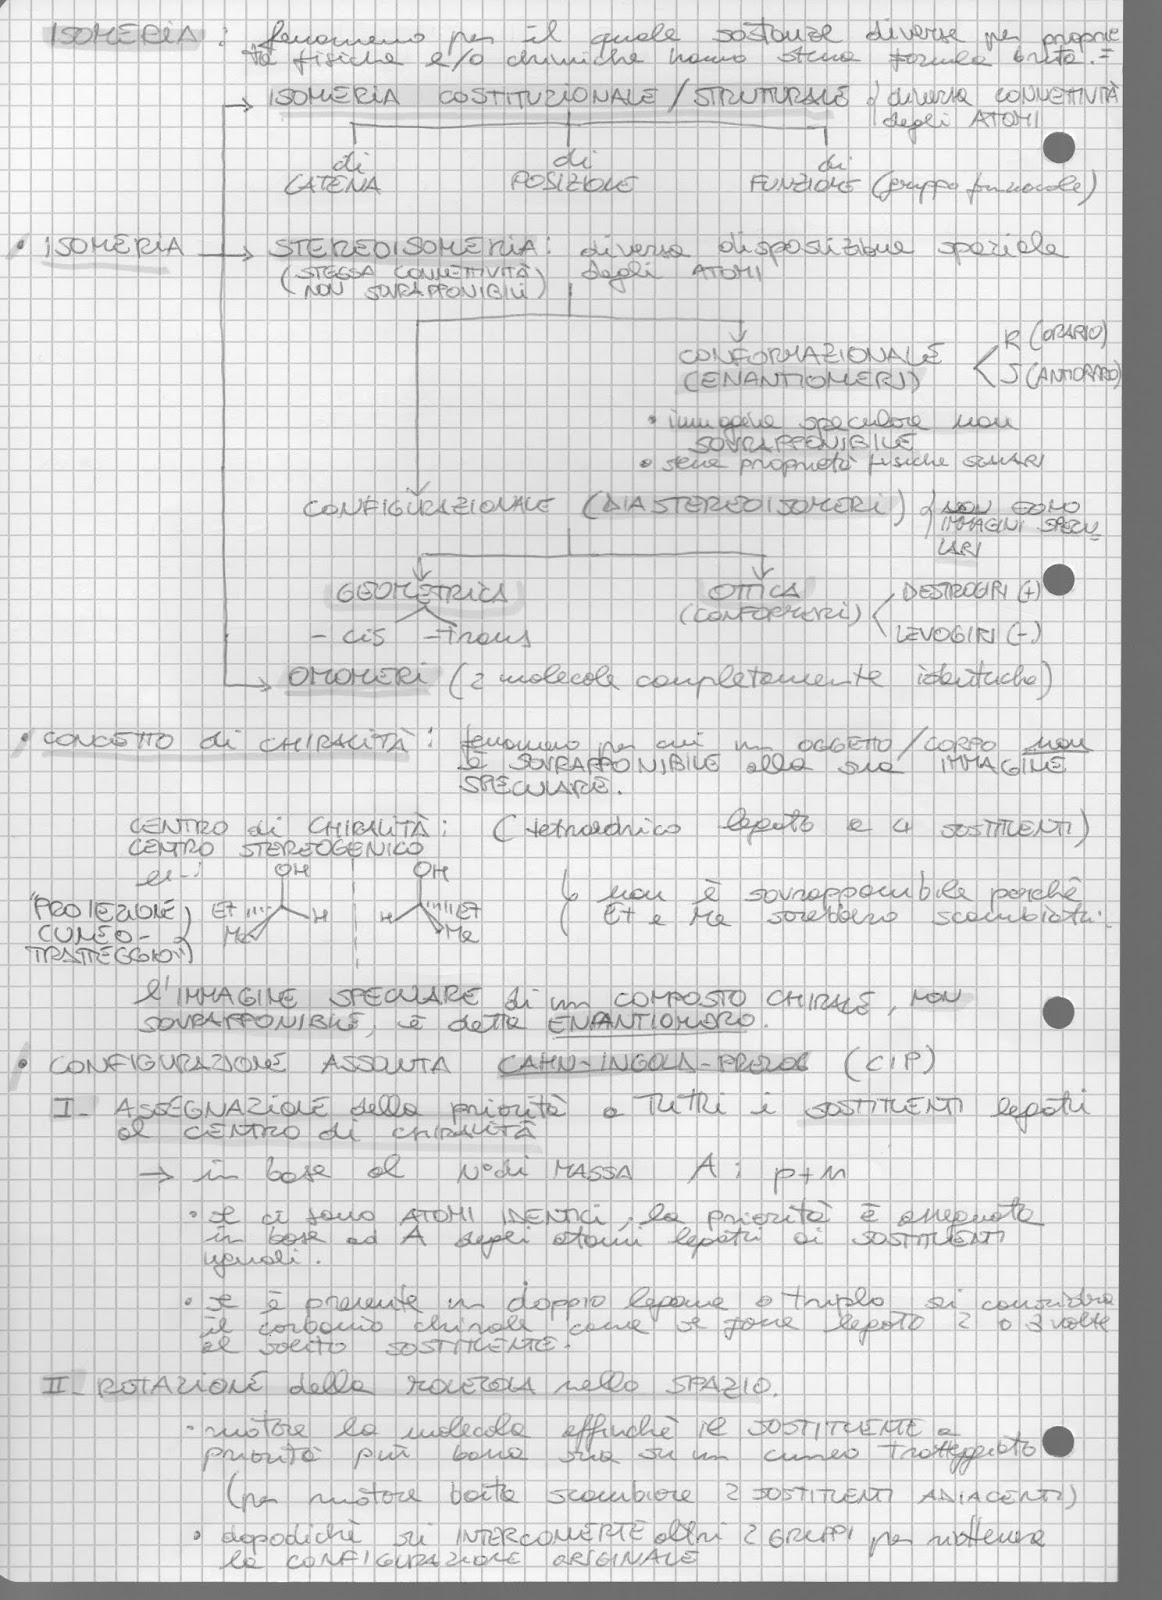 ISOMERIA : fenomeno per il quale sostanze diverse per proprie
tà fisiche e/o chimiche hanno stessa formula bruta.=
ISOMERIA COSTITUZIONALE / STRUTTURALE diversa CONNETTIVITÀ
degli ATOMI
di CATENA
di POSIZIONE
di FUNZIONE (gruppo funzionale)
• ISOMERIA
STEREOISOMERIA: diversa disposizione spaziale
(STESSA CONNETTIVITÀ degli ATOMI
NON SOVRAPPONIBILI)
CONFORMAZIONALE
(ENANTIOMERI)
R (ORARIO)
S (ANTIORARIO)
• immagine speculare non
SOVRAPPONIBILE
• proprietà fisiche
CONFIGURAZIONALE (DIASTEREOISOMERI) NON SONO
IMMAGINI SPECU
LARI
GEOMETRICA
- cis - trans
OTTICA
(CONFORMERI)
DESTROGIRI (+)
LEVOGIRI (-)
OMOMERI (2 molecole completamente identiche)
• CONCETTO di CHIRALITÀ : fenomeno per cui un OGGETTO / CORPO non
è SOVRAPPONIBILE alla sua IMMAGINE
SPECULARE.
CENTRO di CHIRALITÀ: (tetraedrico legato a 4 SOSTITUENTI)
CENTRO STEREOGENICO
es-:
"PROIEZIONE
CUNEO-
TRATTEGGIO"
OH
Et
Me
H
OH
H
Et
Me
non è sovrapponibile perché
Et e Me sarebbero scambiati.
l'IMMAGINE SPECULARE di un COMPOSTO CHIRALE, NON
SOVRAPPONIBILE, è detta ENANTIOMERO.
• CONFIGURAZIONE ASSOLUTA CAHN-INGOLD-PRELOG (CIP)
I- ASSEGNAZIONE della priorità a TUTTI i SOSTITUENTI legati
al CENTRO di CHIRALITÀ
→ in base al N° di MASSA A : p+n
• se ci sono ATOMI IDENTICI, la priorità è assegnata
in base ad A degli atomi legati ai SOSTITUENTI
uguali.
• se è presente un doppio legame o triplo si considera
il carbonio chirale come se fosse legato 2 o 3 volte
al solito SOSTITUENTE.
II- ROTAZIONE della MOLECOLA nello SPAZIO.
• ruotare la molecola affinché il SOSTITUENTE a
priorità più bassa stia su un cuneo tratteggiato
(per ruotare basta scambiare 2 SOSTITUENTI ADIACENTI)
• dopodiché si INTERCONVERTE altri 2 GRUPPI per riottenere
la CONFIGURAZIONE ORIGINALE